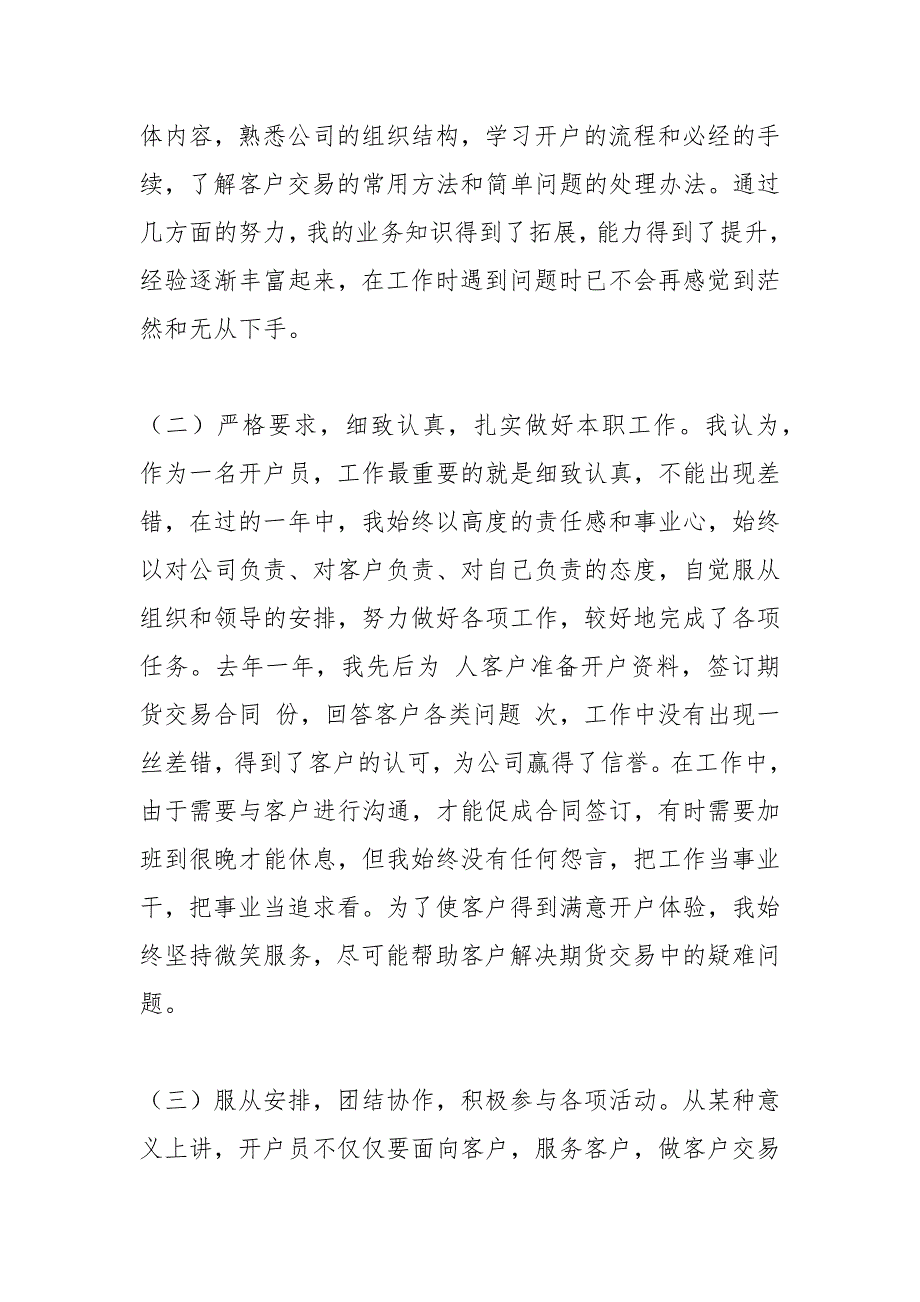 体内容，熟悉公司的组织结构，学习开户的流程和必经的手
续，了解客户交易的常用方法和简单问题的处理办法。通过
几方面的努力，我的业务知识得到了拓展，能力得到了提升，
经验逐渐丰富起来，在工作时遇到问题时已不会再感觉到茫
然和无从下手。
（二）严格要求，细致认真，扎实做好本职工作。我认为，
作为一名开户员，工作最重要的就是细致认真，不能出现差
错，在过的一年中，我始终以高度的责任感和事业心，始终
以对公司负责、对客户负责、对自己负责的态度，自觉服从
组织和领导的安排，努力做好各项工作，较好地完成了各项
任务。去年一年，我先后为 人客户准备开户资料，签订期
货交易合同 份，回答客户各类问题 次，工作中没有出现一
丝差错，得到了客户的认可，为公司赢得了信誉。在工作中，
由于需要与客户进行沟通，才能促成合同签订，有时需要加
班到很晚才能休息，但我始终没有任何怨言，把工作当事业
干，把事业当追求看。为了使客户得到满意开户体验，我始
终坚持微笑服务，尽可能帮助客户解决期货交易中的疑难问
题。
（三）服从安排，团结协作，积极参与各项活动。从某种意
义上讲，开户员不仅仅要面向客户，服务客户，做客户交易